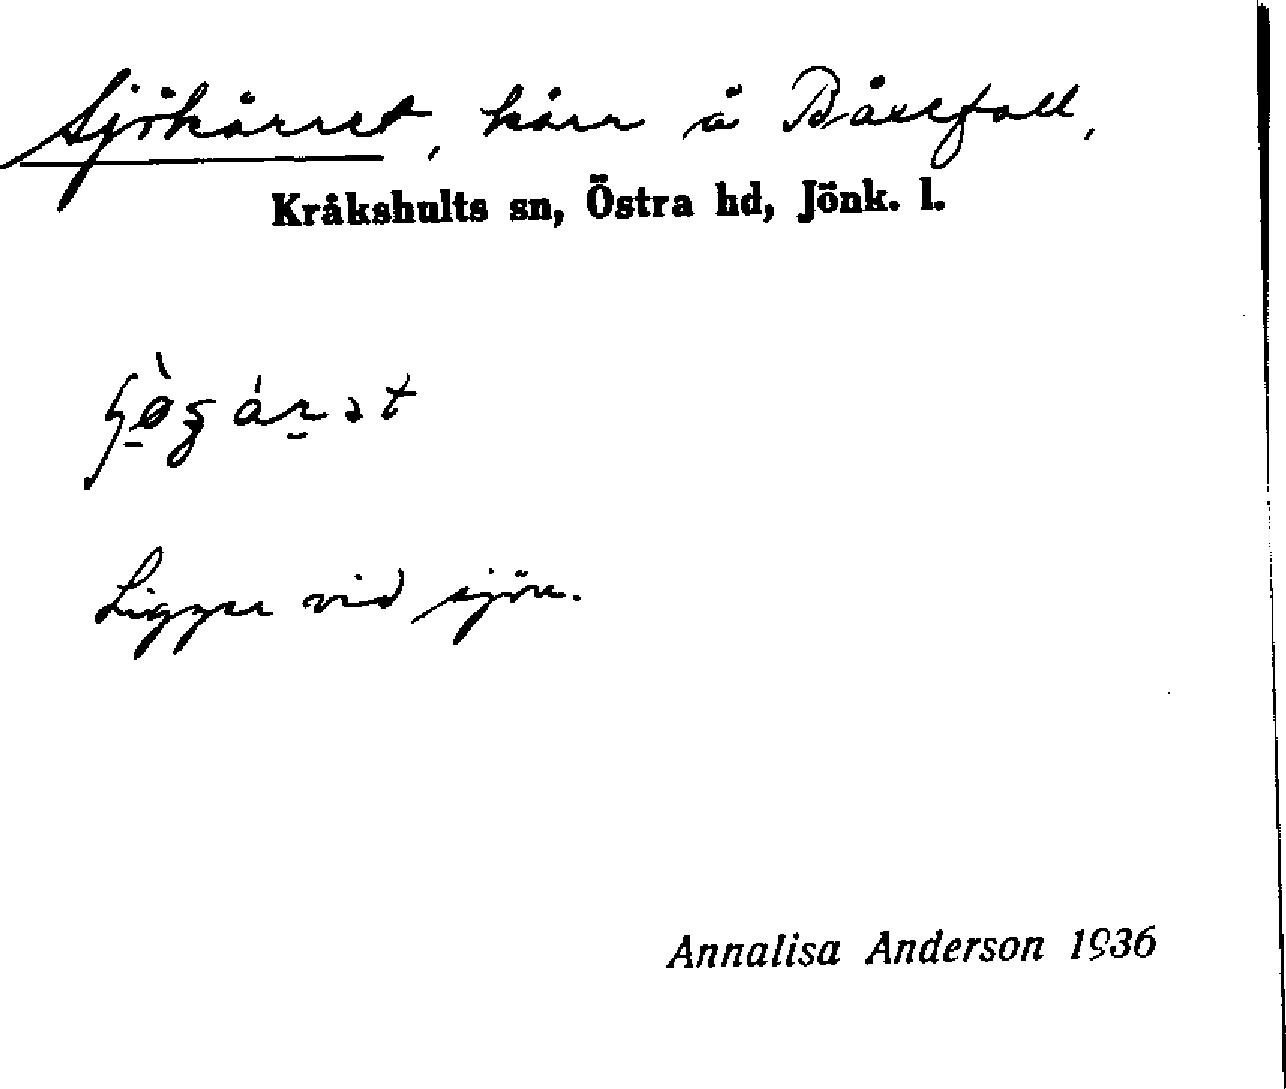 Sjökärret, kärr å
Kråkshults sn, Östra hd, Jönk. l.
Ligger vid sjön.
Annalisa Anderson 1936